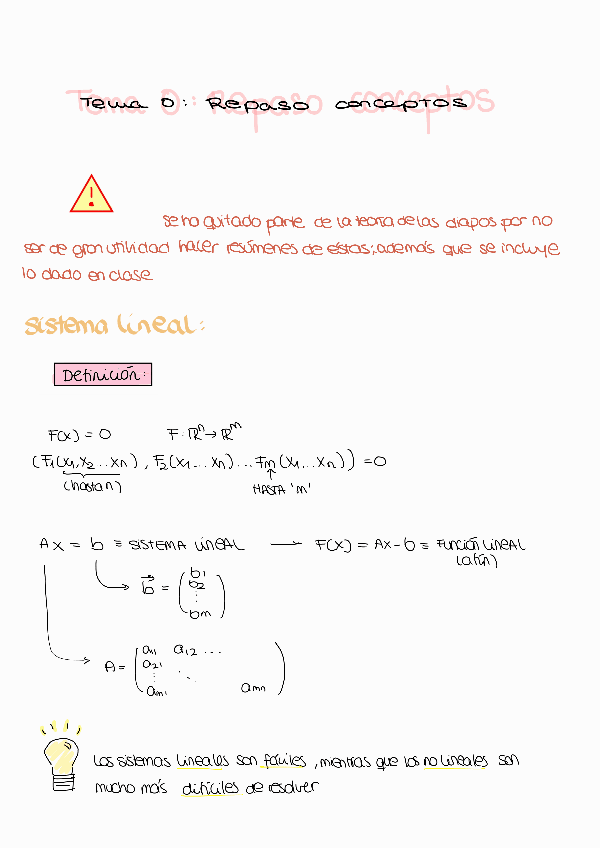 Tema 0: Repaso conceptos
se ha quitado parte de la teoria de las diapos por no
ser de gran utilidad hacer resúmenes de estas; además que se incluye
lo dado en clase
sistema lineal:
Definición:
F(x) = 0 F: ℝⁿ → ℝᵐ
(F₁(x₁, x₂ ... xₙ), F₂(x₁ ... xₙ) ... Fₘ(x₁ ... xₙ)) = 0
(hasta n) HASTA 'm'
Ax = b ≡ SISTEMA LINEAL — F(x) = Ax - b ≡ FUNCIÓN LINEAL
(afín)
b⃗ = (b₁ b₂ ⋮ bₘ)
A = (a₁₁ a₁₂ ...
a₂₁ ⋱
⋮
aₘ₁ aₘₙ)
Los sistemas lineales son fáciles, mientras que los no lineales son
mucho más difíciles de resolver